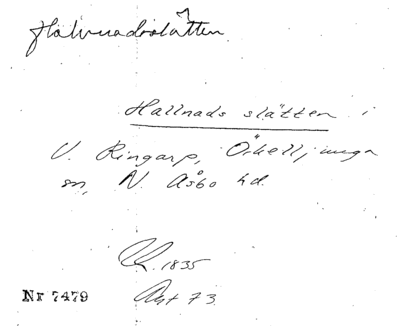 Halvnadsslätten
Hallnads slätten i
V. Ringarp, Örkelljunga
sn, N. Åsbo hd.
1835
Nr 7479 Akt 73